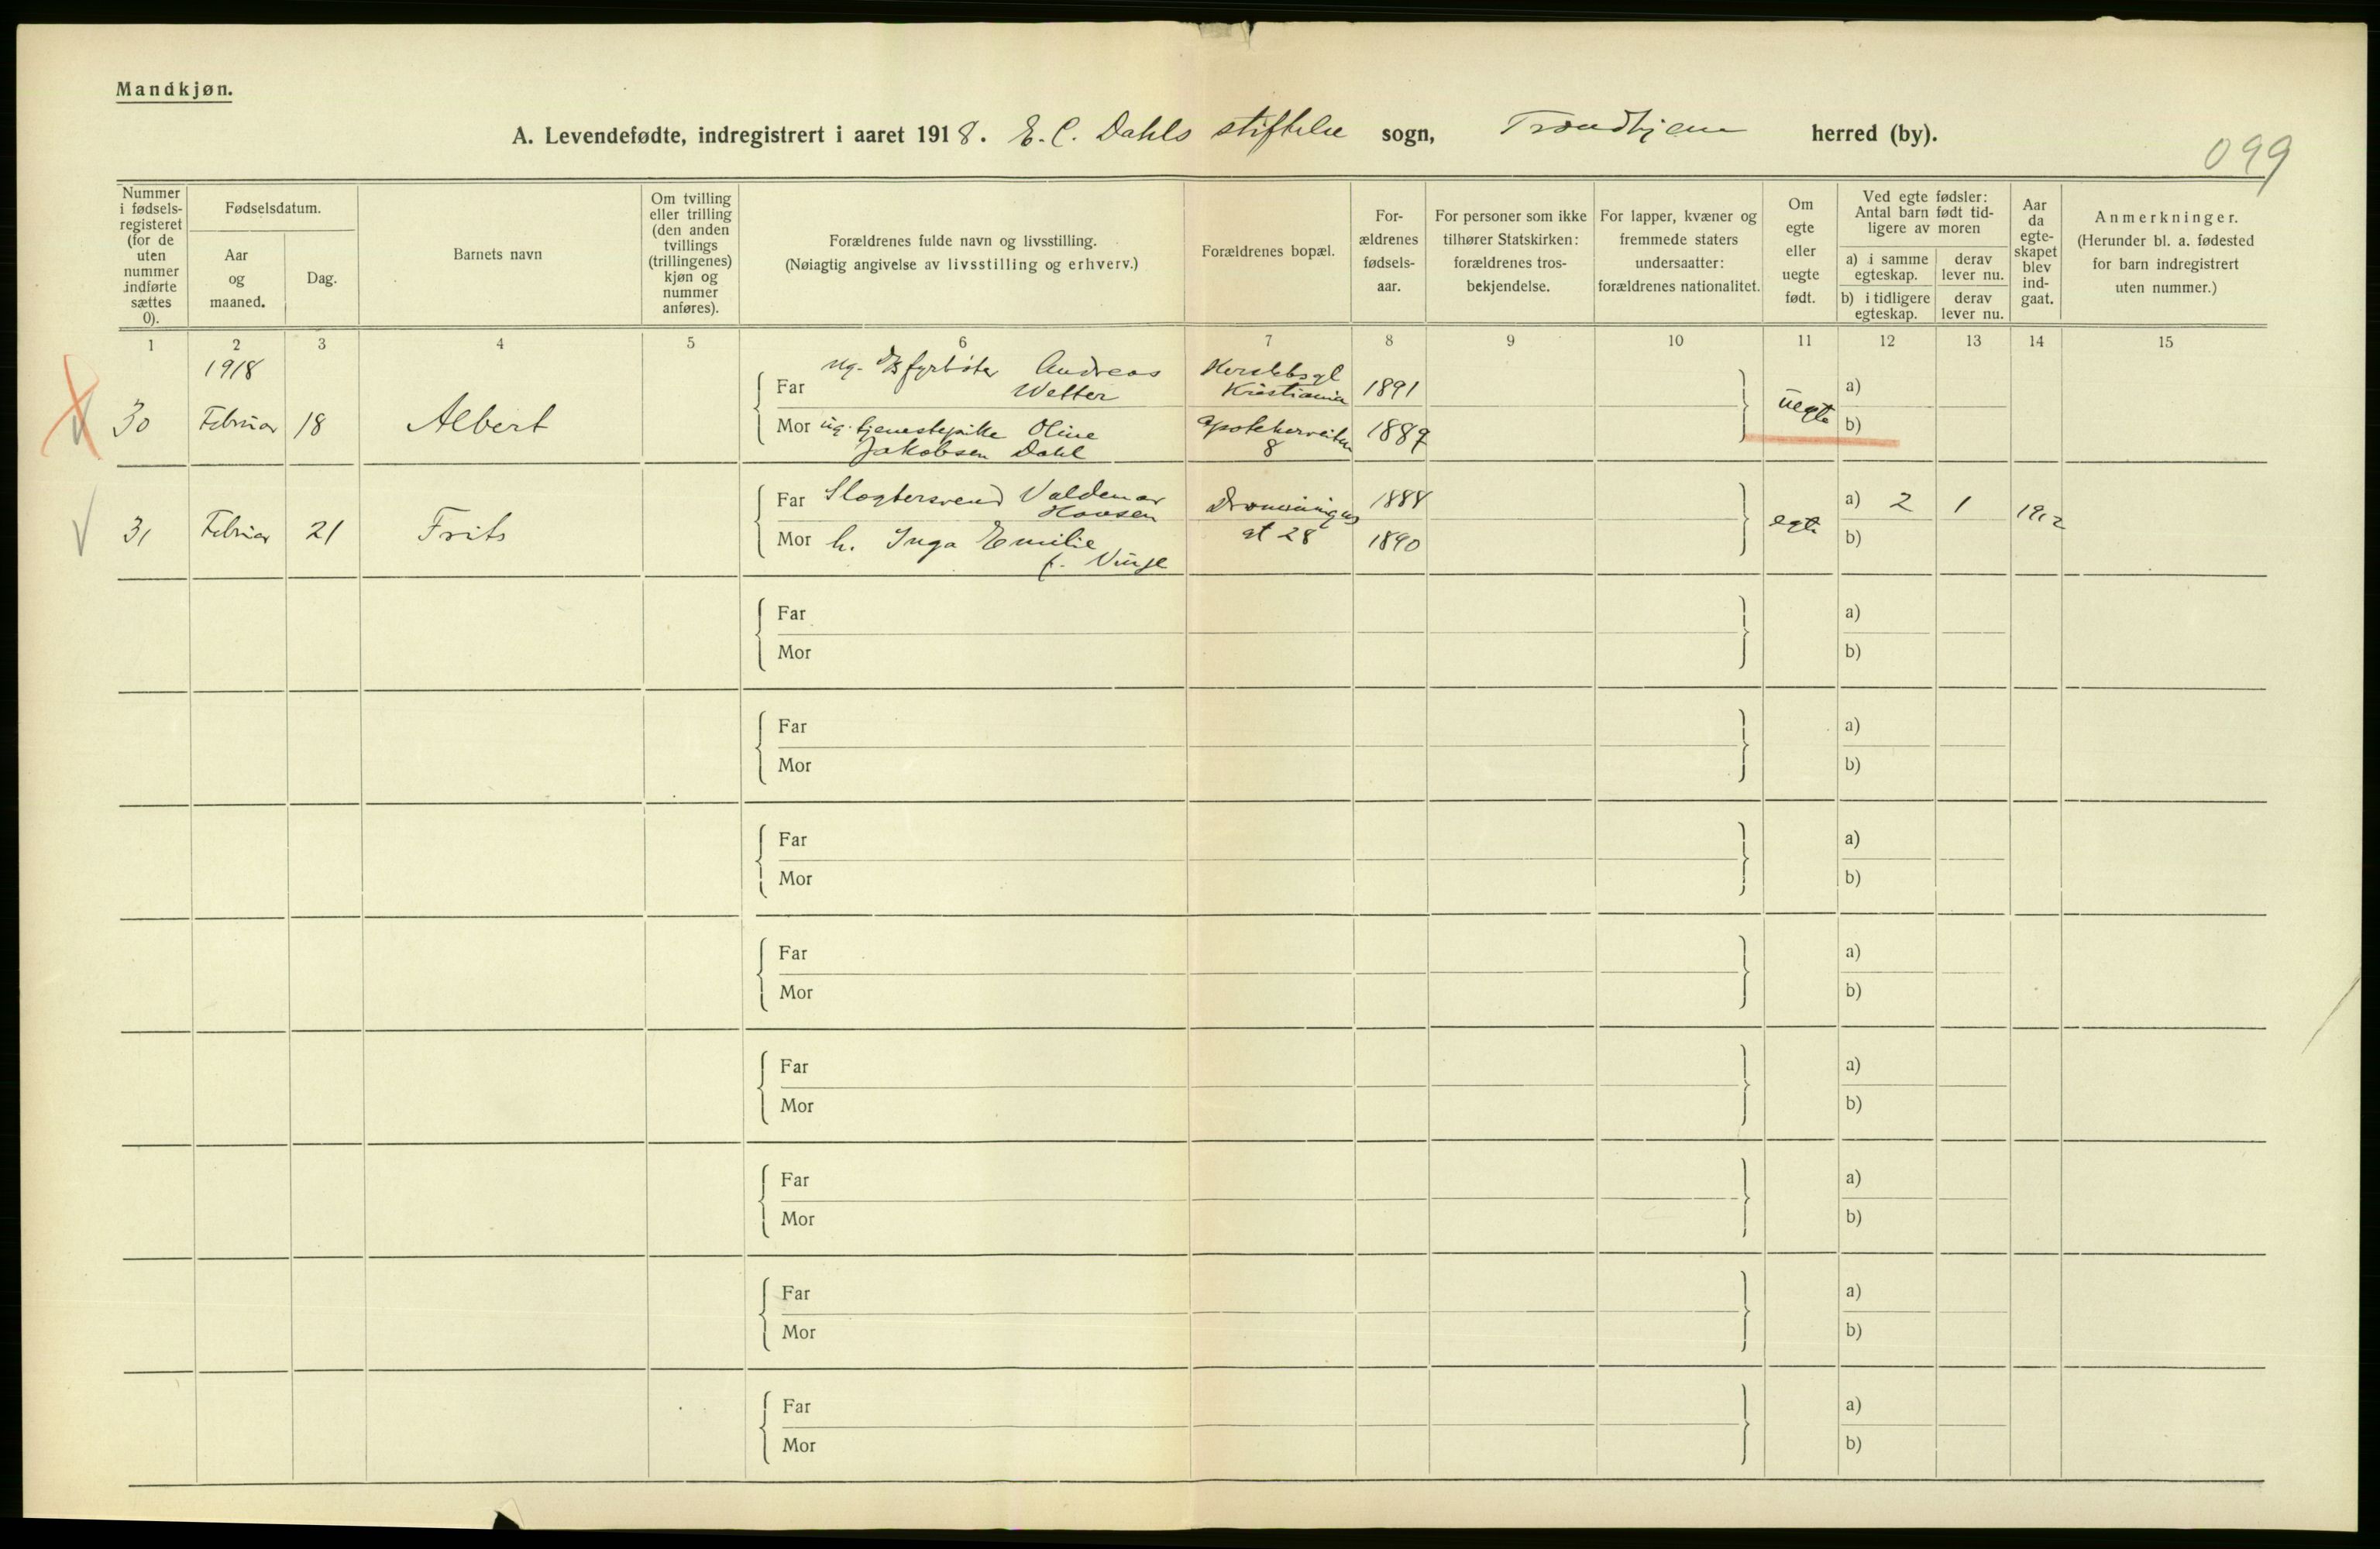 Mandkjøn.
A. Levendefødte, indregistrert i aaret 1918. E. C. Dahls stiftelse sogn, Trondhjem herred (by).
099
Nummer i fødselsregisteret (for de uten nummer indførte sættes 0).
Fødselsdatum.
Aar og maaned.
Dag.
Barnets navn
Om tvilling eller trilling (den anden tvillings (trillingenes) kjøn og nummer anføres).
Forældrenes fulde navn og livsstilling.
(Nøiagtig angivelse av livsstilling og erhverv.)
Forældrenes bopæl.
Forældrenes fødselsaar.
For personer som ikke tilhører Statskirken: forældrenes trosbekjendelse.
For lapper, kvæner og fremmede staters undersaatter: forældrenes nationalitet.
Om egte eller uegte født.
Ved egte fødsler: Antal barn født tidligere av moren
a) i samme egteskap.
derav lever nu.
b) i tidligere egteskap.
derav lever nu.
Aar da egteskapet blev indgaat.
Anmerkninger.
(Herunder bl. a. fødested for barn indregistrert uten nummer.)
1 2 3 4 5 6 7 8 9 10 11 12 13 14 15
1918
30 Februar 18 Albert
Far ug. fyrbøter Andreas Wetter Kristiania 1891
Mor ug. tjenestepike Oline Jakobsen Dahl Apotekerveiten 8 1889
uegte a)
b)
31 Februar 21 Frits
Far Slagtersvend Valdemar Hansen Dronningens gt 28 1888
Mor h. Inga Emilie f. Vinje 1890
egte a) 2 1 1912
b)
Far a)
Mor b)
Far a)
Mor b)
Far a)
Mor b)
Far a)
Mor b)
Far a)
Mor b)
Far a)
Mor b)
Far a)
Mor b)
Far a)
Mor b)